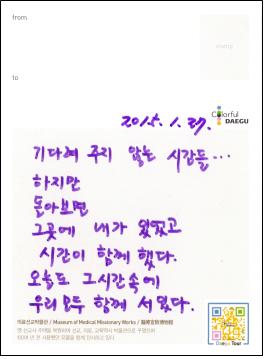 from
stamp
to
Colorful
DAEGU
2015. 1. 27.
기다려 주지 않는 시간들...
하지만
돌아보면
그곳에 내가 있었고
시간이 함께 했다.
오늘도 그시간속에
우리모두 함께 서있다.
의료선교박물관 / Museum of Medical Missionary Works / 醫療宣敎博物館
Daegu Tour